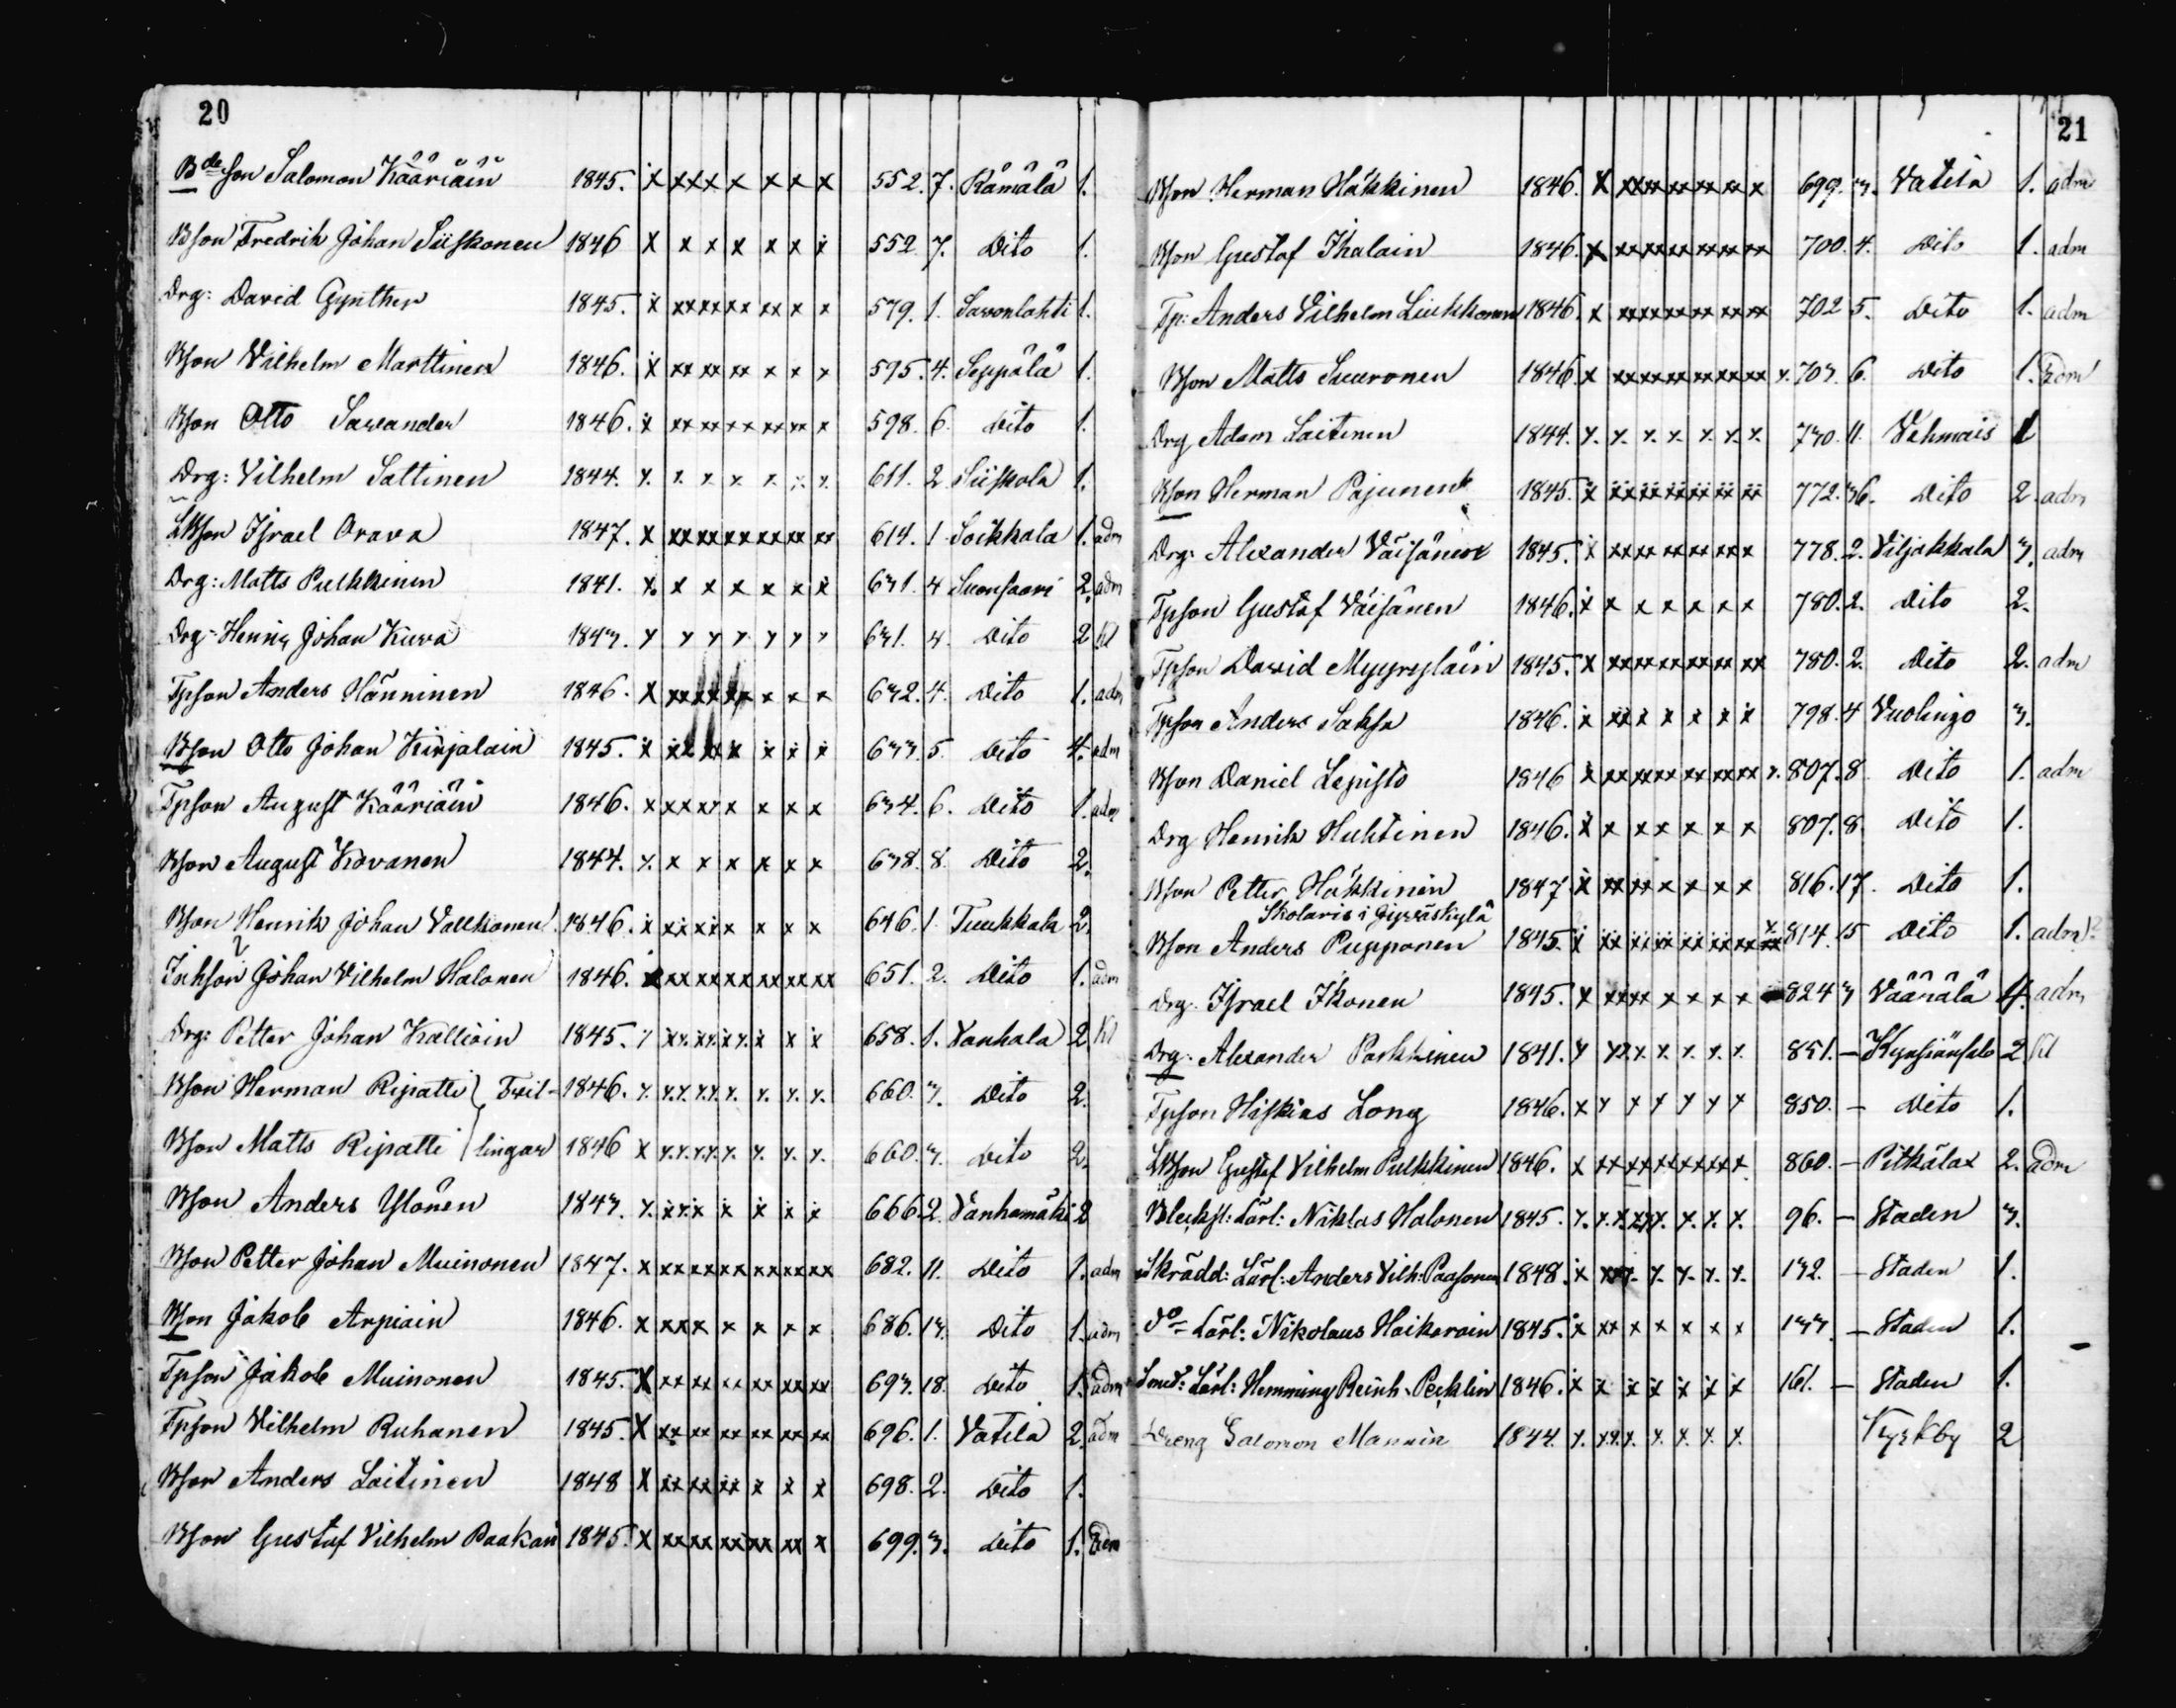 20
Bde son Salomon Kääriäin 1845. x xxx x x x x 552. 7. Kämälä 1.
Bson Fredrik Johan Siiskonen 1846 x x x x x x x 552. 7. Dito 1.
Drg: David Gynther 1845. x xxxxx xx x x 579. 1. Savonlahti 1.
Bson Vilhelm Marttinen 1846. x xx xx xx x x x 595. 4. Seppälä 1.
Bson Otto Savander 1846. x xx xx xx xx xx x 598. 6. Dito 1.
Drg: Vilhelm Sattinen 1844. x x x x x x x 611. 2 Siiskola 1.
LBson Israel Orava 1847. x xx xx xx xx xx xx 614. 1 Soikkala 1. adm
Drg: Matts Pulkkinen 1841. x x x x x x x 631. 4 Suonsaari 2. adm
Drg: Henrik Johan Kurva 1843. x x x x x x x 631. 4. Dito 2 Kl
Tpson Anders Hänninen 1846. x xx xx xx x x x 632. 4. Dito 1. adm
Bson Otto Johan Kirjalain 1845. x xx xx x x x x 633. 5. Dito 4. adm
Tpson August Kääriäin 1846. x xx xx x x x x 634. 6. Dito 1. adm
Bson August Kovanen 1844. x x x x x x x 638. 8. Dito 2.
Bson Henrik Johan Valkonen 1846. x xx xx x x x x 646. 1. Tuukkala 2.
Inhson Johan Vilhelm Halonen 1846. x xx xx xx xx xx xx 651. 2. Dito 1. adm
Drg: Petter Johan Kallioin 1845. x xx xx xx x x x 658. 1. Vanhala 2. Kl
Bson Herman Ripatti Tvil- 1846. x xx xx x x x x 660. 3. Dito 2.
Bson Matts Ripatti lingar 1846 x xx xx x x x x 660. 3. Dito 2.
Bson Anders Ylönen 1843. x xx x x x x x 666. 2. Vanhamäki 2
Bson Petter Johan Muinonen 1847. x xx xx xx xx xx xx 682. 11. Dito 1. adm
Bson Jakob Arpiain 1846. x xx x x x x x 686. 13. Dito 1. adm
Tpson Jakob Muinonen 1845. x xx xx xx xx xx xx 693. 18. Dito 1. adm
Tpson Vilhelm Ruhanen 1845. x xx xx xx xx xx xx 696. 1. Vatila 2. adm
Bson Anders Laitinen 1848 x xx xx xx x x x 698. 2. Dito 1.
Bson Gustaf Vilhelm Paakain 1845. x xx xx xx xx xx x 699. 3. Dito 1. adm
21
Bson Herman Häkkinen 1846. x xx xx xx xx x x 699. 3. Vatila 1. adm
Bson Gustaf Ikalain 1846. x xx xx xx xx xx xx 700. 4. Dito 1. adm
Tp: Anders Vilhelm Liukkonen 1846. x xx xx xx xx xx xx 702 5. Dito 1. adm
Bson Matts Suuronen 1846 x xx xx xx xx xx xx x. 703. 6. Dito 1. adm
Drg Adam Laitinen 1844. x. x. x. x. x. x. x. 730. 11. Vehmais 1
Bson Herman Pajunen 1845. x xx xx xx xx xx xx 772. 36. Dito 2. adm
Drg: Alexander Väisänen 1845. x xx xx xx xx x x 778. 2. Viljakkala 3. adm
Tpson Gustaf Väisänen 1846. x x x x x x x 780. 2. Dito 2.
Tpson David Myyryläin 1845. x xx xx xx xx xx xx 780. 2. Dito 2. adm
Tpson Anders Saksa 1846. x xx x x x x x 798. 4 Vuolingo 3.
Bson Daniel Lepistö 1846 x xx xx xx xx xx xx x. 807. 8. Dito 1. adm
Drg Henrik Huhtinen 1846. x x x x x x x 807. 8. Dito 1.
Bson Petter Häkkinen 1847 x xx xx x x x x 816. 17. Dito 1.
Skolaris i Jyväskylä
Bson Anders Pupponen 1845. x xx xx xx xx xx xx xx 814. 15 Dito 1. adm?
Drg. Israel Ikonen 1845. x xx xx x x x x 824 3 Väärälä 4. adm
Drg: Alexander Parkkinen 1841. x xx x x x x x 851. — Kynsiänsalo 2 Kl
Tpson Hiskias Long 1846. x x x x x x x 850. — Dito 1.
LBson Gustaf Vilhelm Pulkkinen 1846. x xx xx xx xx x x 860. — Pitkälax 2. adm
Blecksl: Lärl: Niklas Halonen 1845. x. x. x. xx x. x. x. 96. — Staden 3.
Skrädd: Lärl: Anders Vilh: Paasonen 1848. x xx x. x. x. x. x. 132. — Staden 1.
do Lärl: Nikolaus Haikarain 1845. x xx x x x x x 133. — Staden 1.
Smed: Lärl: Hemming Reinh. Pecklin 1846. x x x x x x x 161. — Staden 1.
Dreng Salomon Mannin 1844. x. xx. x. x. x. x. x. Kyrkby 2